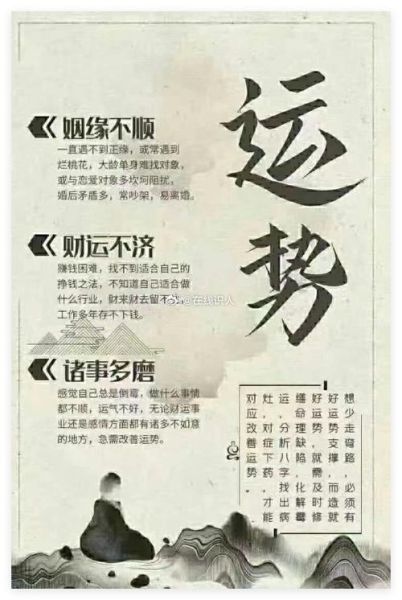 运势
姻缘不顺
一直遇不到正缘，或常遇到
烂桃花，大龄单身难找对象，
或与恋爱对象多坎坷阻扰，
婚后矛盾多，常吵架，易离婚。
财运不济
赚钱困难，找不到适合自己的
挣钱之法，不知自己适合做
什么行业，财来财去留不
工作多年存不下钱。
@在线识人
诸事多磨
感觉自己总是倒霉，做什么事情
都不顺，运气不好，无论财运事
业还是感情方面都有诸多不如意
的地方，急需改善运势。
想少走弯路，必须有
好运势支撑，而造就
好运势，就需，及时修
缮，命理缺陷，化解霉
运，分析八字，找出病
灶，对症下药，才能
对应改善运势。